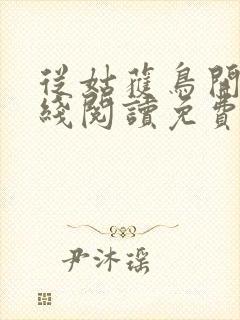 從姑蒦鳥開
綫閱讀免費
尹沐瑶